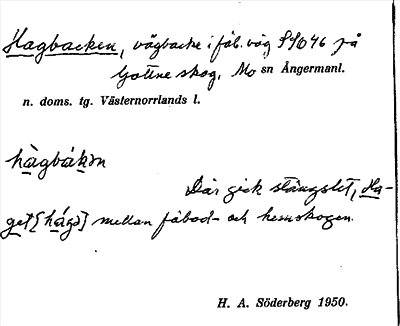 Hagbacken, vägbacke i fäb.väg SSO 46 på
Gottne skog, Mo sn Ångermanl.
n. doms. tg. Västernorrlands l.
hàgbákən
Där gick stängslet, Ha-
get [hágə] mellan fäbod- och hemskogen.
H. A. Söderberg 1950.